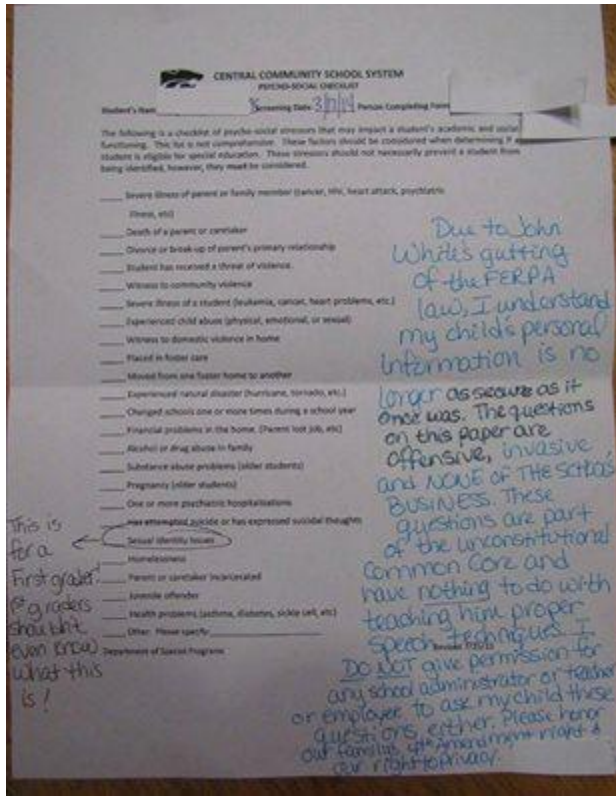 CENTRAL COMMUNITY SCHOOL SYSTEM
PSYCHO-SOCIAL CHECKLIST
Student's Name Screening Date 3/ /14 Person Completing Form
The following is a checklist of psycho-social stressors that may impact a student's academic and social
functioning. This list is not comprehensive. These factors should be considered when determining if a
student is eligible for special education. These stressors should not necessarily prevent a student from
being identified, however, they must be considered.
____ Severe illness of parent or family member (cancer, HIV, heart attack, psychiatric
illness, etc)
____ Death of a parent or caretaker
____ Divorce or break-up of parent's primary relationship
____ Student has received a threat of violence.
____ Witness to community violence
____ Severe illness of a student (leukemia, cancer, heart problems, etc.)
____ Experienced child abuse (physical, emotional, or sexual)
____ Witness to domestic violence in home
____ Placed in foster care
____ Moved from one foster home to another
____ Experienced natural disaster (hurricane, tornado, etc.)
____ Changed schools one or more times during a school year
____ Financial problems in the home. (Parent lost job, etc)
____ Alcohol or drug abuse in family
____ Substance abuse problems (older students)
____ Pregnancy (older students)
____ One or more psychiatric hospitalizations
____ Has attempted suicide or has expressed suicidal thoughts
____ Sexual identity issues
____ Homelessness
____ Parent or caretaker incarcerated
____ Juvenile offender
____ Health problems (asthma, diabetes, sickle cell, etc)
____ Other. Please specify:
Department of Special Programs
Revised
This is
for a
First grader!
1st graders
shouldn't
even know
what this
is!
Due to John
White's gutting
of the FERPA
law, I understand
my child's personal
information is no
longer as secure as it
once was. The questions
on this paper are
offensive, invasive
and NONE OF THE SCHOOL'S
BUSINESS. These
questions are part
of the unconstitutional
Common Core and
have nothing to do with
teaching him proper
speech techniques. I
DO NOT give permission for
any school administrator or teacher
or employee to ask my child these
questions, either. Please honor
our families 4th Amendment right &
our right to Privacy.